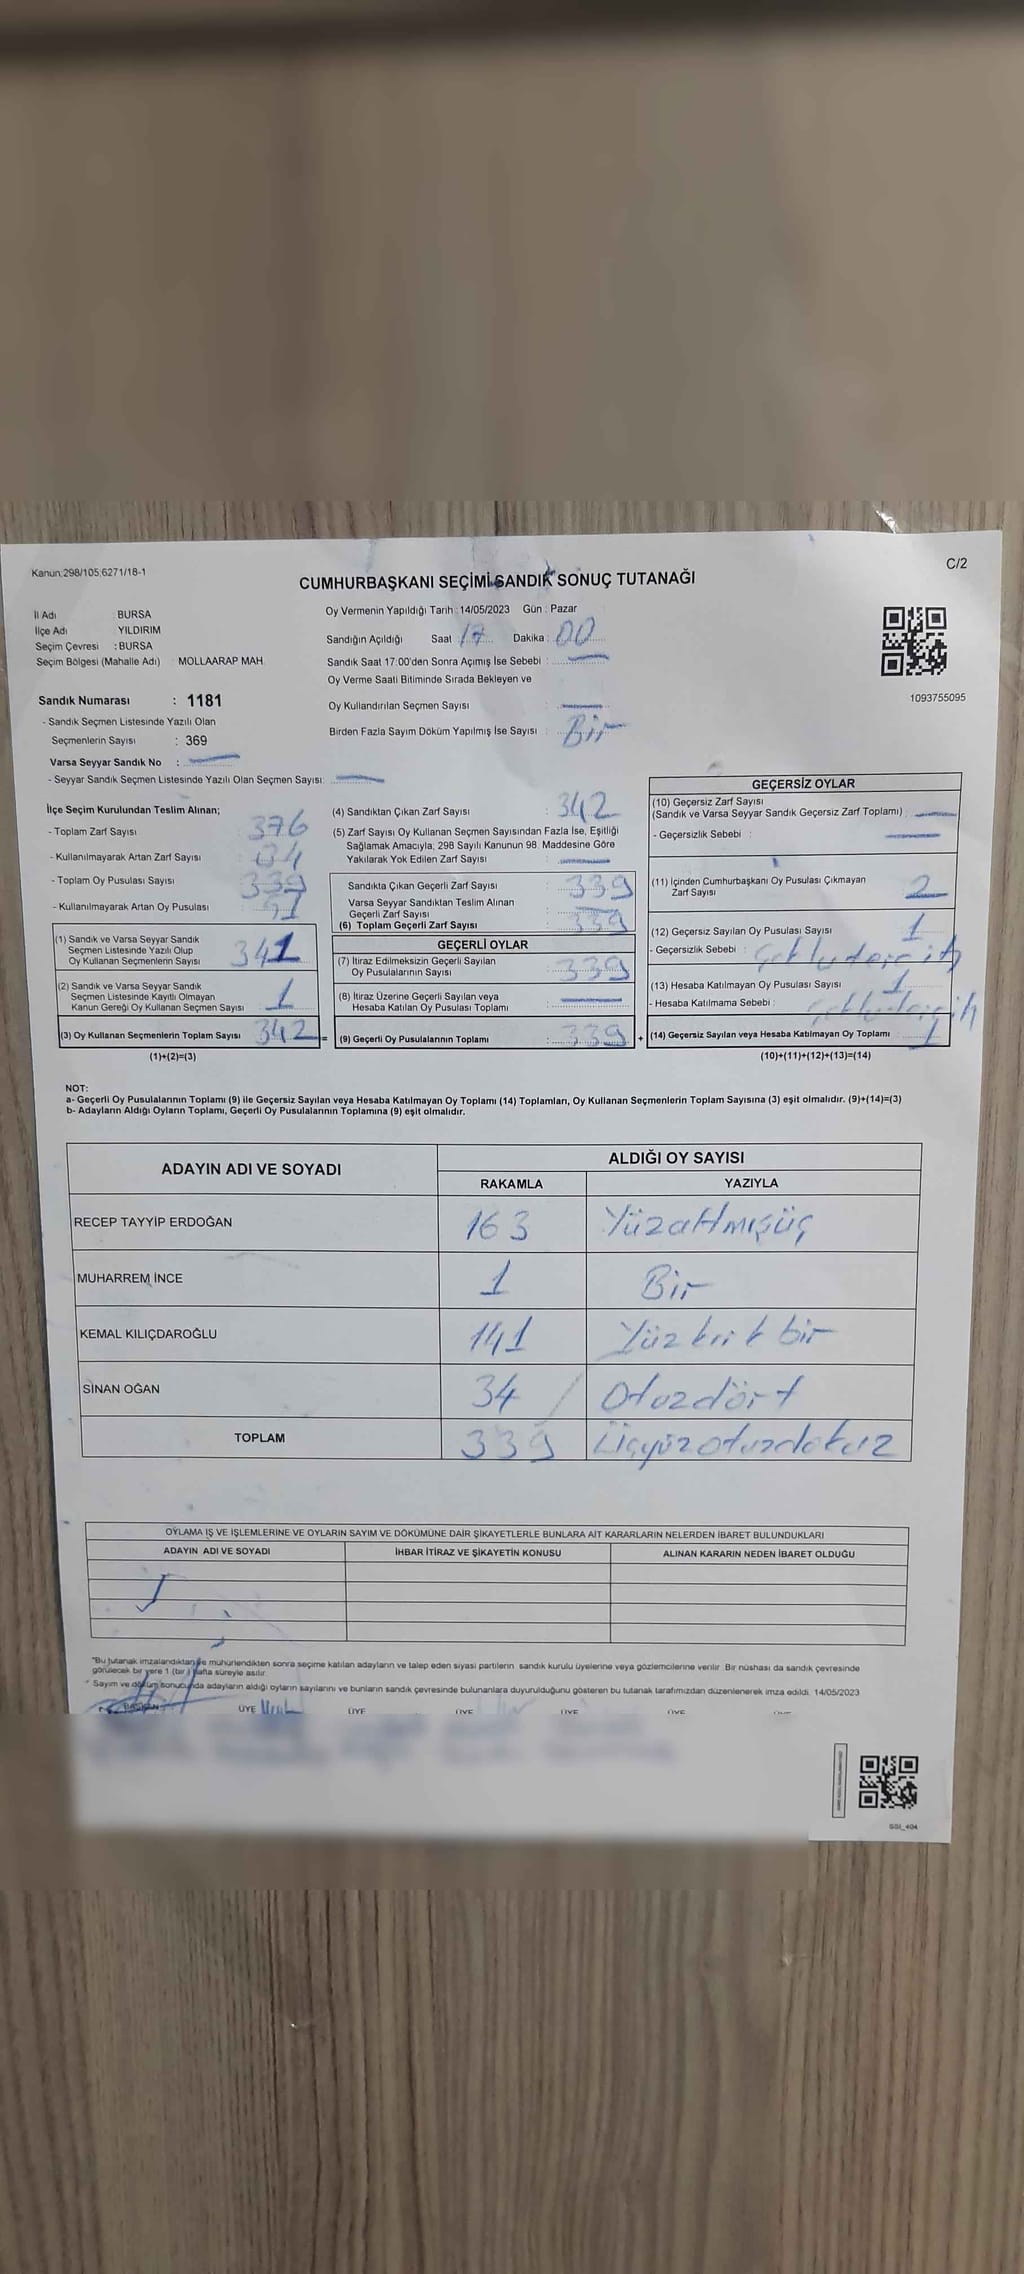 Kanun:298/105,6271/18-1
C/2
CUMHURBAŞKANI SEÇİMİ SANDIK SONUÇ TUTANAĞI
İl Adı : BURSA
İlçe Adı : YILDIRIM
Seçim Çevresi : BURSA
Seçim Bölgesi (Mahalle Adı) : MOLLAARAP MAH.
Oy Vermenin Yapıldığı Tarih :14/05/2023 Gün : Pazar
Sandığın Açıldığı Saat : 17 Dakika : 00
Sandık Saat 17:00'den Sonra Açımış İse Sebebi : —
Oy Verme Saati Bitiminde Sırada Bekleyen ve
Oy Kullandırılan Seçmen Sayısı : —
Birden Fazla Sayım Döküm Yapılmış İse Sayısı : Bir
1093755095
Sandık Numarası : 1181
- Sandık Seçmen Listesinde Yazılı Olan
Seçmenlerin Sayısı : 369
Varsa Seyyar Sandık No : —
- Seyyar Sandık Seçmen Listesinde Yazılı Olan Seçmen Sayısı: —
İlçe Seçim Kurulundan Teslim Alınan;
- Toplam Zarf Sayısı : 376
- Kullanılmayarak Artan Zarf Sayısı : 34
- Toplam Oy Pusulası Sayısı : 339
- Kullanılmayarak Artan Oy Pusulası :
(1) Sandık ve Varsa Seyyar Sandık
Seçmen Listesinde Yazılı Olup
Oy Kullanan Seçmenlerin Sayısı : 341
(2) Sandık ve Varsa Seyyar Sandık
Seçmen Listesinde Kayıtlı Olmayan
Kanun Gereği Oy Kullanan Seçmen Sayısı : 1
(3) Oy Kullanan Seçmenlerin Toplam Sayısı : 342 =
(1)+(2)=(3)
(4) Sandıktan Çıkan Zarf Sayısı : 342
(5) Zarf Sayısı Oy Kullanan Seçmen Sayısından Fazla İse, Eşitliği
Sağlamak Amacıyla, 298 Sayılı Kanunun 98. Maddesine Göre
Yakılarak Yok Edilen Zarf Sayısı : —
Sandıkta Çıkan Geçerli Zarf Sayısı : 339
Varsa Seyyar Sandıktan Teslim Alınan
Geçerli Zarf Sayısı : —
(6) Toplam Geçerli Zarf Sayısı : 339
GEÇERLİ OYLAR
(7) İtiraz Edilmeksizin Geçerli Sayılan
Oy Pusulalarının Sayısı : 339
(8) İtiraz Üzerine Geçerli Sayılan veya
Hesaba Katılan Oy Pusulası Toplamı : —
(9) Geçerli Oy Pusulalarının Toplamı : 339 +
GEÇERSİZ OYLAR
(10) Geçersiz Zarf Sayısı
(Sandık ve Varsa Seyyar Sandık Geçersiz Zarf Toplamı) : —
- Geçersizlik Sebebi : —
(11) İçinden Cumhurbaşkanı Oy Pusulası Çıkmayan
Zarf Sayısı : 2
(12) Geçersiz Sayılan Oy Pusulası Sayısı : 1
- Geçersizlik Sebebi :
(13) Hesaba Katılmayan Oy Pusulası Sayısı : 1
- Hesaba Katılmama Sebebi :
(14) Geçersiz Sayılan veya Hesaba Katılmayan Oy Toplamı : 1
(10)+(11)+(12)+(13)=(14)
NOT:
a- Geçerli Oy Pusulalarının Toplamı (9) ile Geçersiz Sayılan veya Hesaba Katılmayan Oy Toplamı (14) Toplamları, Oy Kullanan Seçmenlerin Toplam Sayısına (3) eşit olmalıdır. (9)+(14)=(3)
b- Adayların Aldığı Oyların Toplamı, Geçerli Oy Pusulalarının Toplamına (9) eşit olmalıdır.
ADAYIN ADI VE SOYADI ALDIĞI OY SAYISI
RAKAMLA YAZIYLA
RECEP TAYYİP ERDOĞAN 163 Yüzaltmışüç
MUHARREM İNCE 1 Bir
KEMAL KILIÇDAROĞLU 141 Yüzkırk bir
SİNAN OĞAN 34 / Otuzdört
TOPLAM 339 Üçyüzotuzdokuz
OYLAMA İŞ VE İŞLEMLERİNE VE OYLARIN SAYIM VE DÖKÜMÜNE DAİR ŞİKAYETLERLE BUNLARA AİT KARARLARIN NELERDEN İBARET BULUNDUKLARI
ADAYIN ADI VE SOYADI İHBAR İTİRAZ VE ŞİKAYETİN KONUSU ALINAN KARARIN NEDEN İBARET OLDUĞU
*Bu tutanak imzalandıktan ve mühürlendikten sonra seçime katılan adayların ve talep eden siyasi partilerin sandık kurulu üyelerine veya gözlemcilerine verilir. Bir nüshası da sandık çevresinde
görülecek bir yere 1 (bir) hafta süreyle asılır.
* Sayım ve döküm sonucunda adayların aldığı oyların sayılarını ve bunların sandık çevresinde bulunanlara duyurulduğunu gösteren bu tutanak tarafımızdan düzenlenerek imza edildi. 14/05/2023
BAŞKAN ÜYE ÜYE ÜYE ÜYE ÜYE
SSI_404